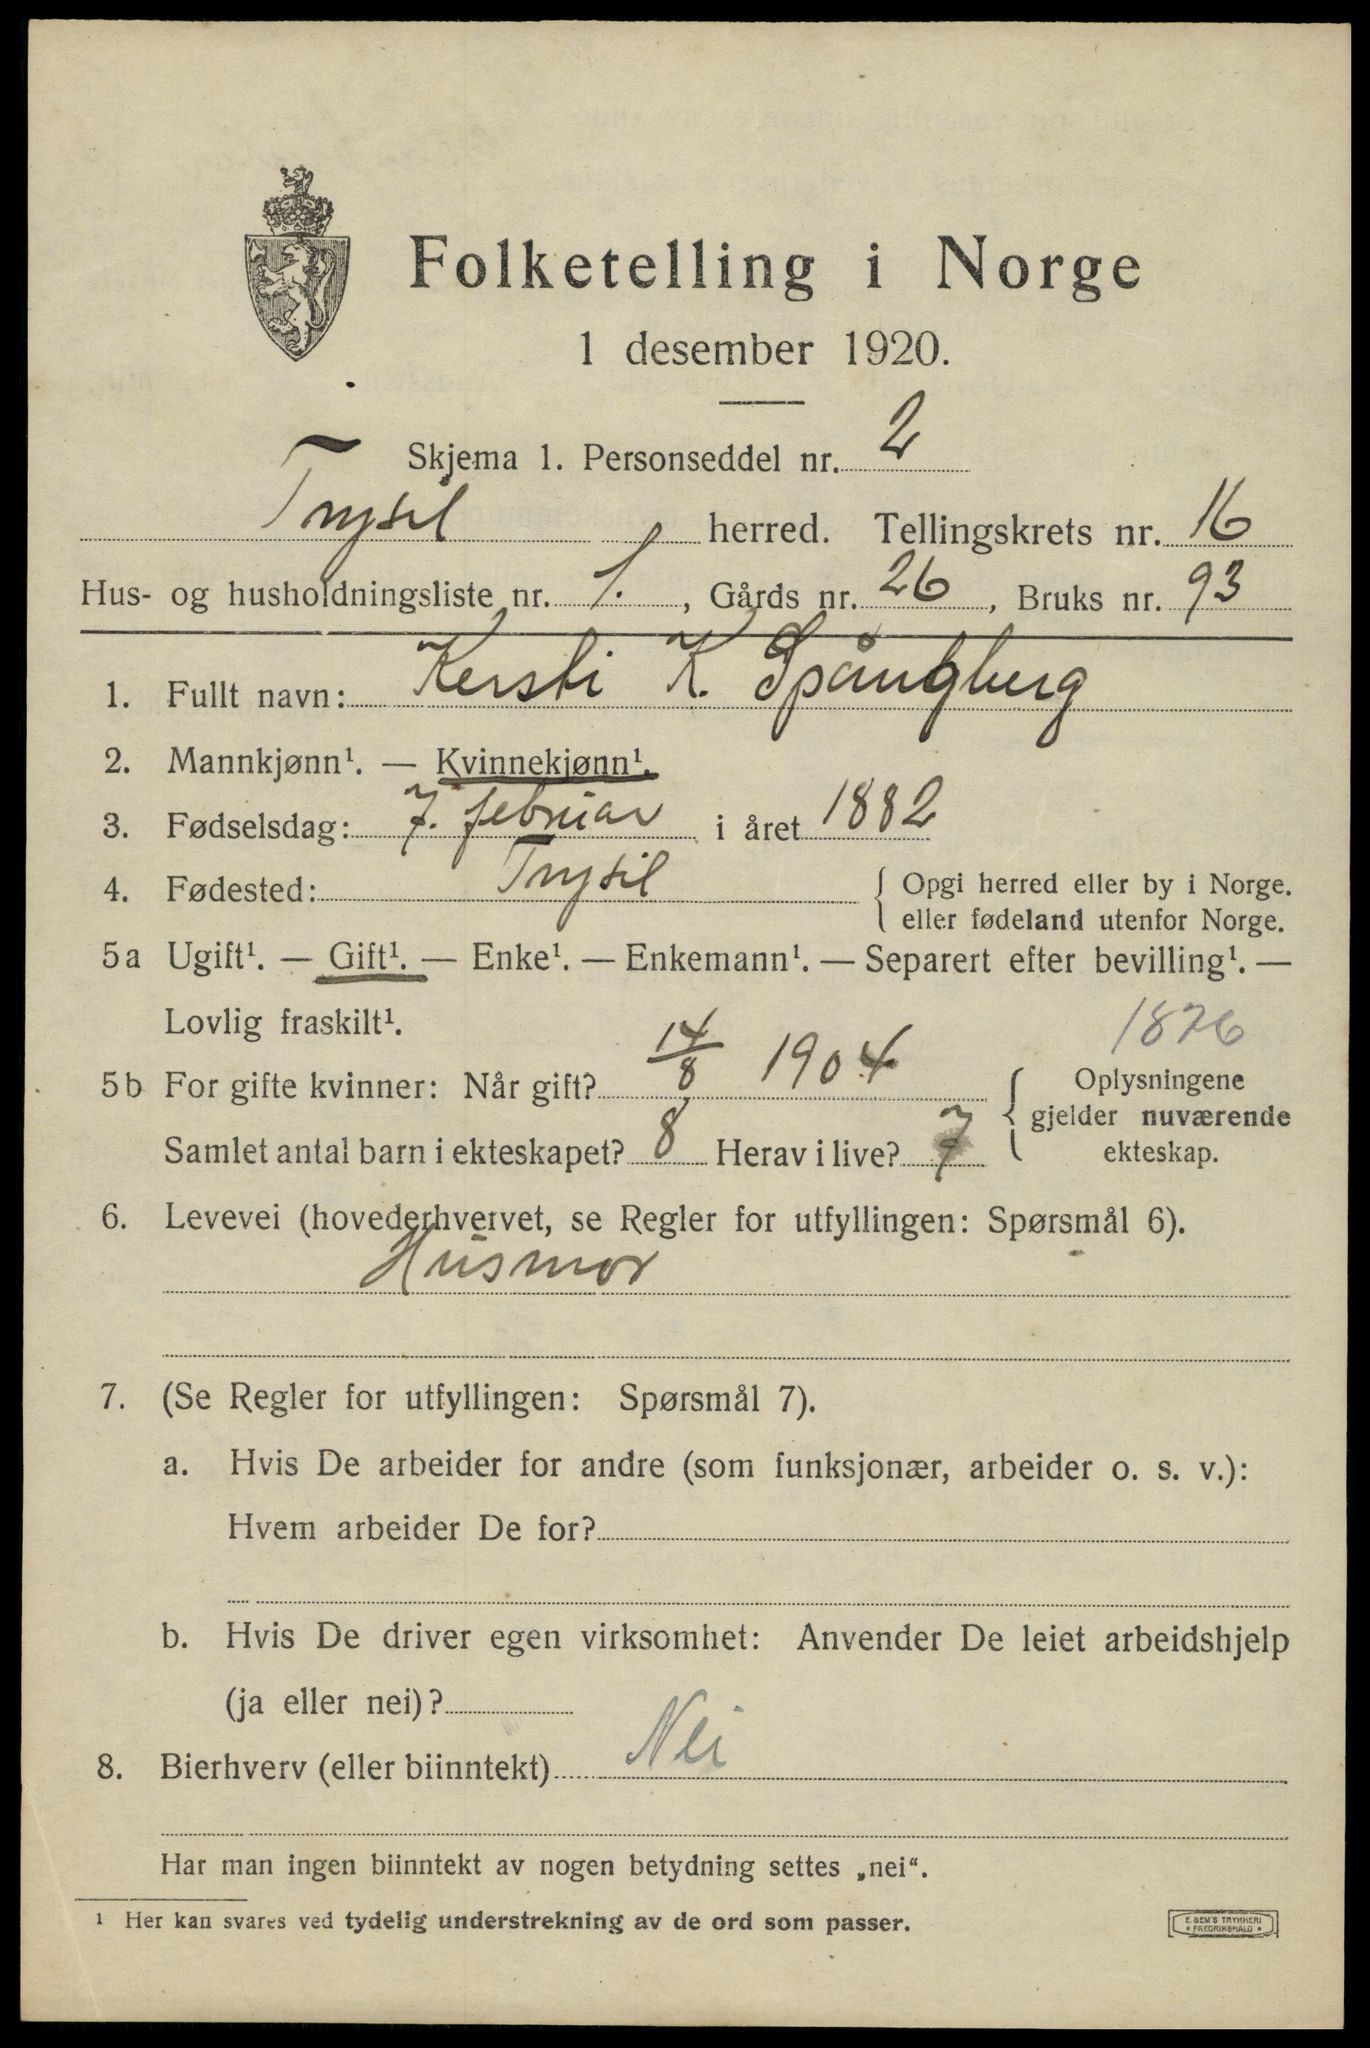 Folketelling i Norge
1 desember 1920.
Skjema 1. Personseddel nr. 2
Trysil herred. Tellingskrets nr. 16
Hus- og husholdningsliste nr. 1., Gårds nr. 26, Bruks nr. 93
1. Fullt navn: Kersti K. Spångberg
2. Mannkjønn¹. — Kvinnekjønn¹.
3. Fødselsdag: 7. februar i året 1882
4. Fødested: Trysil { Opgi herred eller by i Norge.
eller fødeland utenfor Norge.
5a Ugift¹. — Gift¹. — Enke¹. — Enkemann¹. — Separert efter bevilling¹. —
Lovlig fraskilt¹.
1876
5b For gifte kvinner: Når gift? 14/8 1904 { Oplysningene
gjelder nuværende
Samlet antal barn i ekteskapet? 8 Herav i live? 7 ekteskap.
6. Levevei (hovederhvervet, se Regler for utfyllingen: Spørsmål 6).
Husmor
7. (Se Regler for utfyllingen: Spørsmål 7).
a. Hvis De arbeider for andre (som funksjonær, arbeider o. s. v.):
Hvem arbeider De for?
b. Hvis De driver egen virksomhet: Anvender De leiet arbeidshjelp
(ja eller nei)?
8. Bierhverv (eller biinntekt) Nei
Har man ingen biinntekt av nogen betydning settes „nei“.
¹ Her kan svares ved tydelig understrekning av de ord som passer.
E. SEM'S TRYKKERI
FREDRIKSHALD